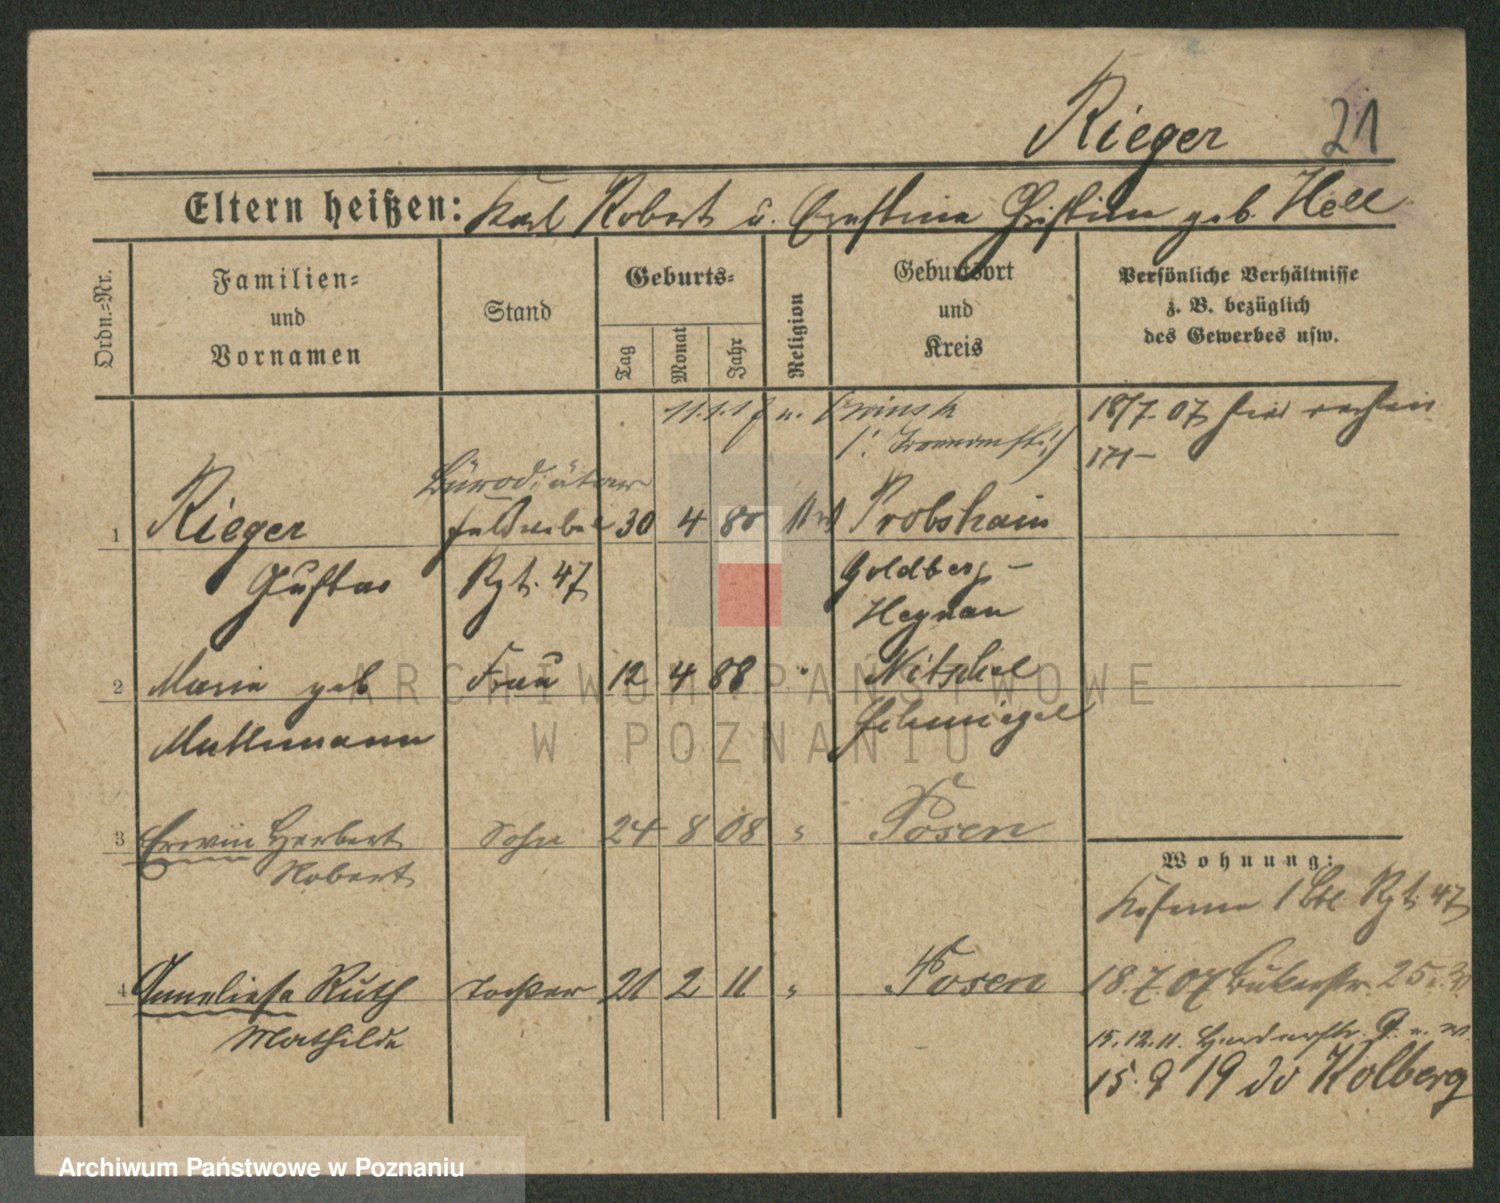 Rieger 21
Eltern heißen: Karl Robert u. Ernstine Christine geb. Hell
Ordn.=Nr.
Familien=
und
Vornamen
Stand
Geburts=
Tag
Monat
Jahr
Religion
Geburtsort
und
Kreis
Persönliche Verhältnisse
z. B. bezüglich
des Gewerbes usw.
11.1.1
18/7. 07
171-
Bürodiätar
1 Rieger Feldwebel 30 4 80 Probsthain
Gustav Rgt. 47 Goldberg-
Heynau
2 Marie geb Frau 12 4 88 " Nitschel
Muthmann Schmiegel
3 Erwin Herbert Sohn 24 8 08 " Posen
Robert
Wohnung:
Kaserne 1 Btl. Rgt. 47
4 Anneliese Ruth Tochter 21 2 11 " Posen
18.7.07 25
Mathilde
15.12.11.
15. 9 19 do Kolberg
ARCHIWUM PAŃSTWOWE
W POZNANIU
Archiwum Państwowe w Poznaniu